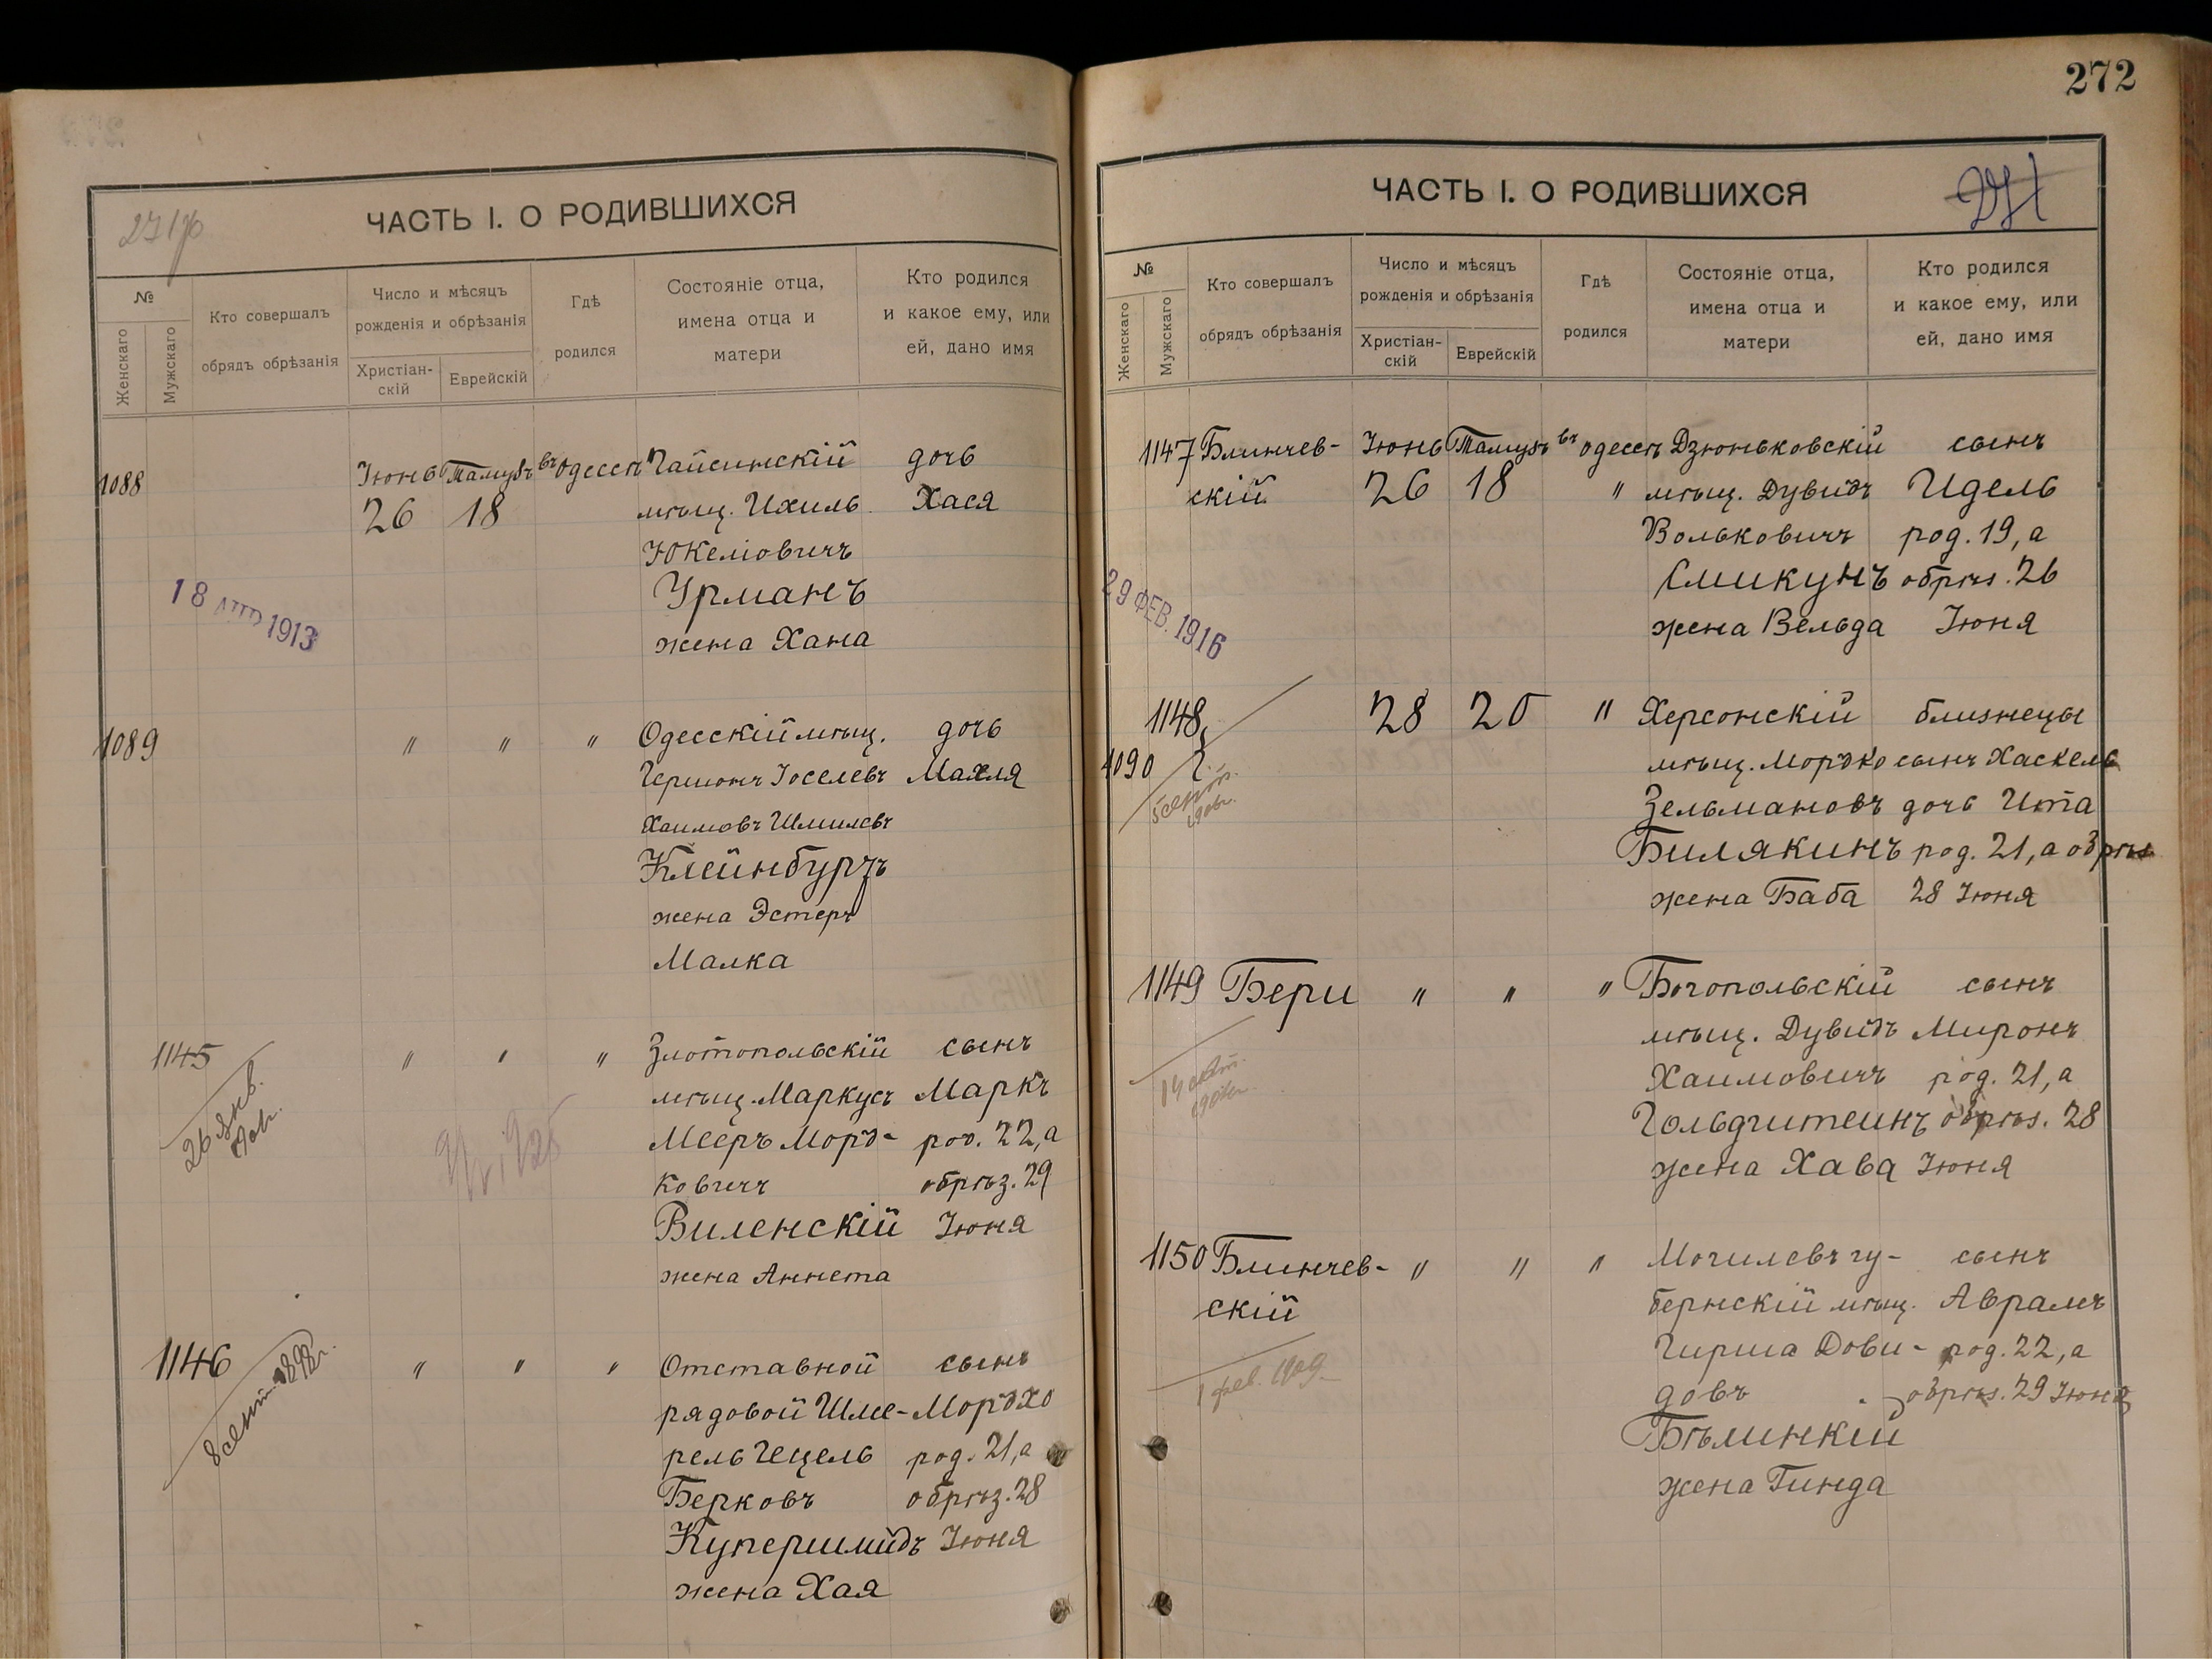 271 об
ЧАСТЬ I. О РОДИВШИХСЯ
№
Женскаго
Мужскаго
Кто совершалъ
обрядъ обрѣзанія
Число и мѣсяцъ
рожденія и обрѣзанія
Христіан-
скій
Еврейскій
Гдѣ
родился
Состояніе отца,
имена отца и
матери
Кто родился
и какое ему, или
ей, дано имя
1088 Іюнь Тамузъ въ Одессѣ Гайсинскій дочь
26 18 мѣщ. Ихиль Хася
Юкеліовичъ
Урманъ
жена Хана
18 АПР 1913
1089 " " " Одесскій мѣщ. дочь
Гершонъ Іоселевъ Махля
Хаимовъ Шмилевъ
Клейнбурдъ
жена Эстеръ
Малка
1145 " " " Злотопольскій сынъ
мѣщ. Маркусъ Маркъ
Мееръ Морд- род. 22, а
ковичъ обрѣз. 29
Виленскій Іюня
жена Аннета
26 янв.
1146 " " " Отставной сынъ
рядовой Шме- Мордхо
рель Гецель род. 21, а
Берковъ обрѣз. 28
Купершмидъ Іюня
жена Хая
8 сент. 1898 г.
272
ЧАСТЬ I. О РОДИВШИХСЯ
№
Женскаго
Мужскаго
Кто совершалъ
обрядъ обрѣзанія
Число и мѣсяцъ
рожденія и обрѣзанія
Христіан-
скій
Еврейскій
Гдѣ
родился
Состояніе отца,
имена отца и
матери
Кто родился
и какое ему, или
ей, дано имя
1147 Блинчев- Іюнь Тамузъ въ Одессѣ Дзюньковскій сынъ
скій 26 18 " мѣщ. Дувидъ Идель
Вольковичъ род. 19, а
Смикунъ обрѣз. 26
жена Вельда Іюня
29 ФЕВ. 1916
1148 28 20 " Херсонскій близнецы
1090 мѣщ. Мордко сынъ Хаскель
Зельмановъ дочь Ита
Билякинъ род. 21, а обрѣз
жена Баба 28 Іюня
5 сент.
1149 Бери " " " Богопольскій сынъ
мѣщ. Дувидъ Миронъ
Хаимовичъ род. 21, а
Гольдштеинъ обрѣз. 28
жена Хава Іюня
1150 Блинчев- " " " Могилевъ гу- сынъ
скій бернскій мѣщ. Аврамъ
Гирша Дови- род. 22, а
довъ обрѣз. 29 Іюня
Бѣлинкій
жена Гинда
1 фев. 1909